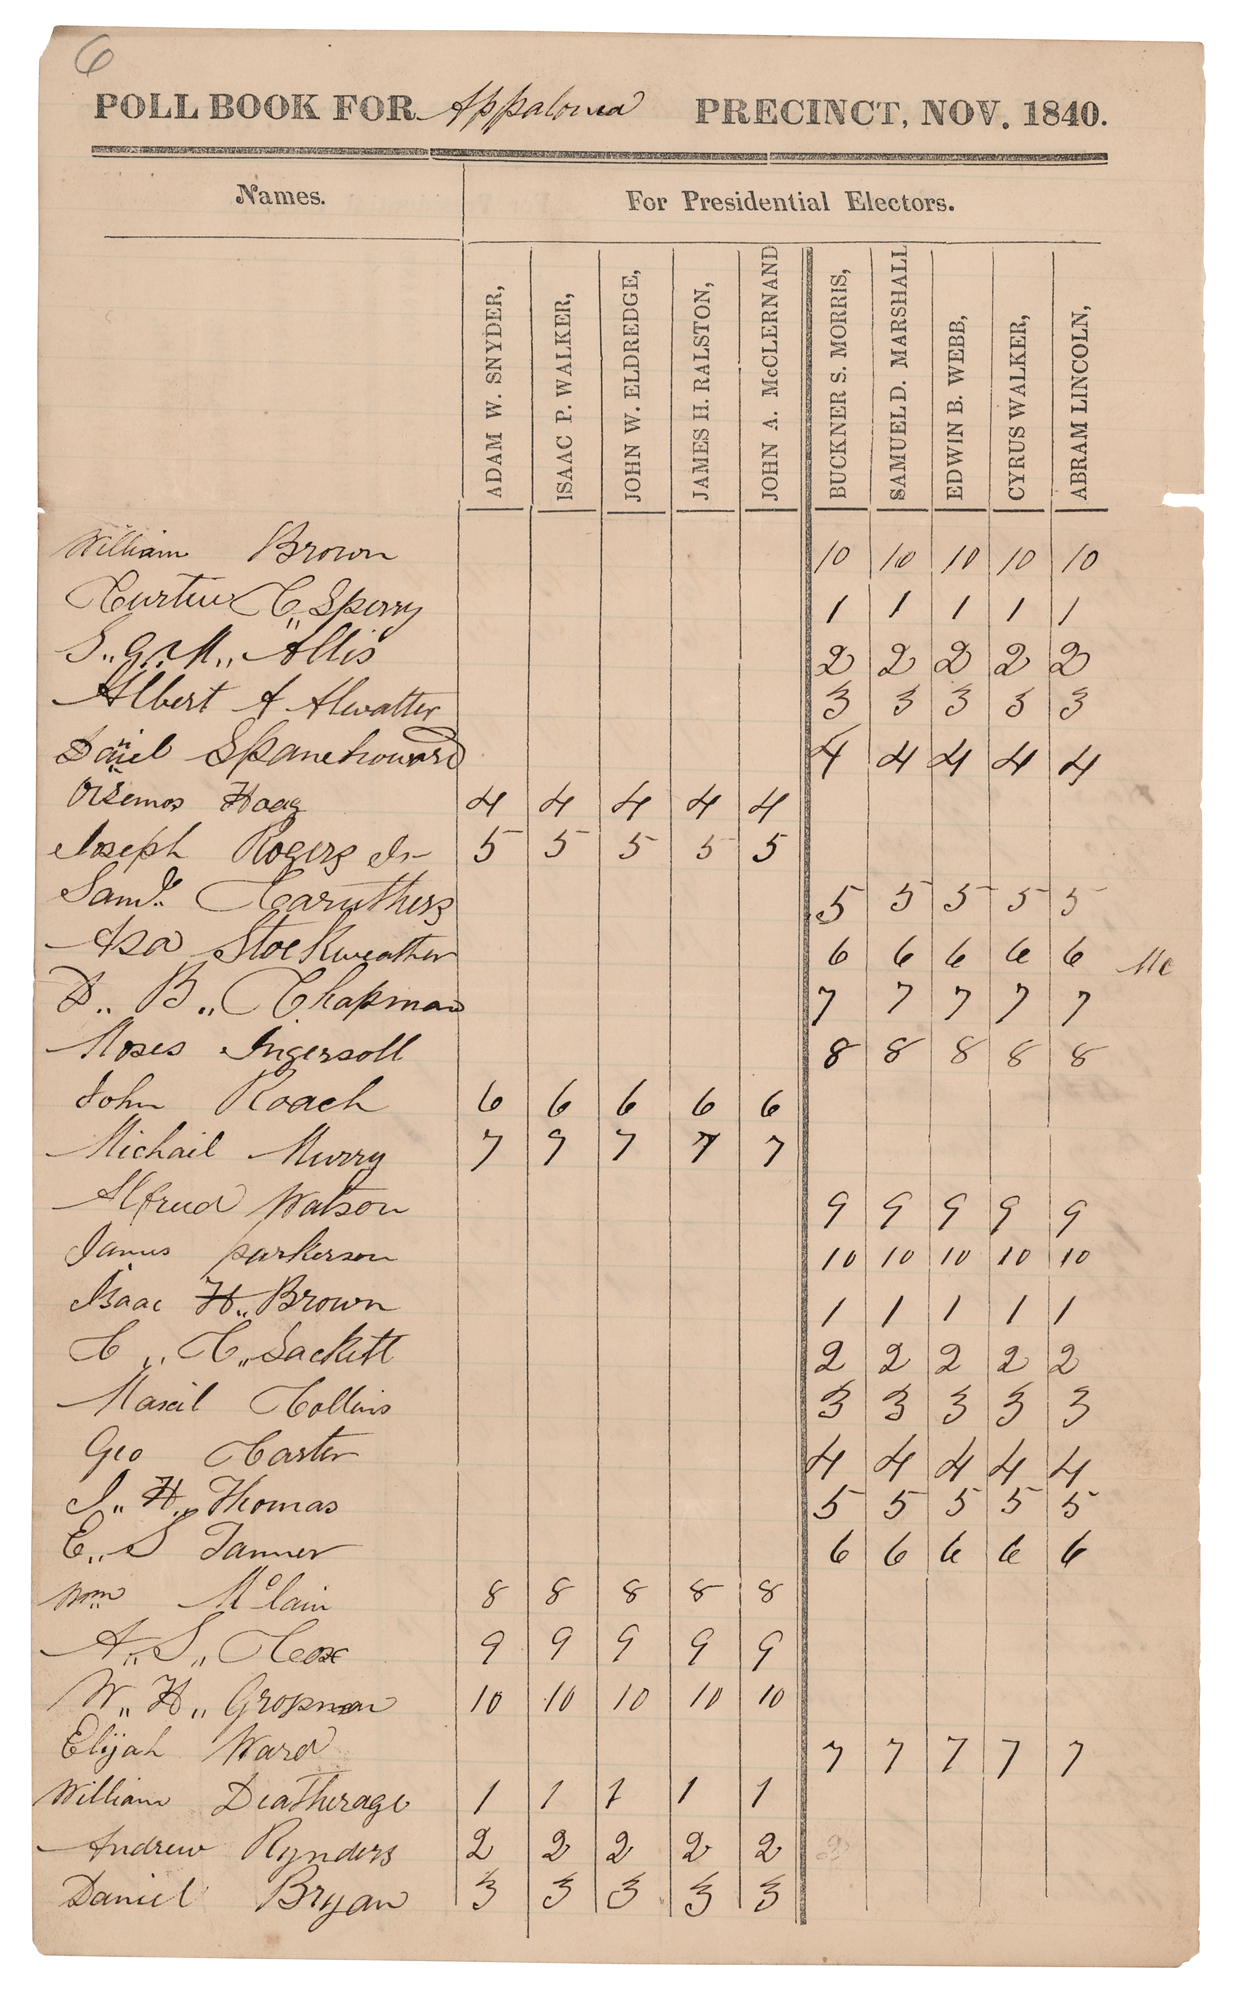 6
POLL BOOK FOR Appalonia PRECINCT, NOV. 1840.
Names. For Presidential Electors.
ADAM W. SNYDER, ISAAC P. WALKER, JOHN W. ELDREDGE, JAMES H. RALSTON, JOHN A. McCLERNAND BUCKNER S. MORRIS, SAMUEL D. MARSHALL EDWIN B. WEBB, CYRUS WALKER, ABRAM LINCOLN,
William Brown 10 10 10 10 10
Curtus C. Sperry 1 1 1 1 1
S. G. M. Allis 2 2 2 2 2
Albert A Alwatter 3 3 3 3 3
Daniel 4 4 4 4 4
Orsemos Hoag 4 4 4 4 4
Joseph Rogers Jr 5 5 5 5 5
Saml. Caruthers 5 5 5 5 5
Asa Stockweather 6 6 6 6 6 Mc
D. B. Chapman 7 7 7 7 7
Moses Ingersoll 8 8 8 8 8
John Roach 6 6 6 6 6
Michail Murry 7 7 7 7 7
Alfred Watson 9 9 9 9 9
James parkerson 10 10 10 10 10
Isaac H. Brown 1 1 1 1 1
C. C. Sackett 2 2 2 2 2
Collins 3 3 3 3 3
Geo Carter 4 4 4 4 4
J. H. Thomas 5 5 5 5 5
E. S Tanner 6 6 6 6 6
Wm Mclain 8 8 8 8 8
A. S. Cox 9 9 9 9 9
W. H. 10 10 10 10 10
Elijah Ward 7 7 7 7 7
William Deatherage 1 1 1 1 1
Andrew Rynders 2 2 2 2 2 2
Daniel Bryan 3 3 3 3 3